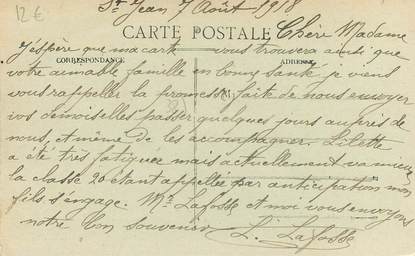 12 €
St Jean 7 Août 1918
CARTE POSTALE
Chère Madame
J'éspère que ma carte vous trouvera ainsi que
CORRESPONDANCE
ADRESSE
votre aimable famille en bonne santé je viens
vous rappeller la promesse faite de nous envoyer
vos demoiselles passer quelques jours auprès de
nous, et même de les accompagner. Lilette
a été très fatiguée mais actuellement va mieux
la classe 20 étant appellée par anticipation mon
fils s'engage. Mr Lafosse et moi vous envoyons
notre bon souvenir
L. Lafosse